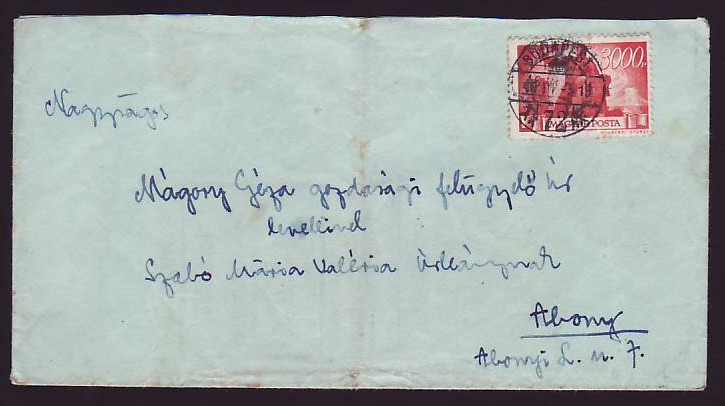 BUDAPEST
3000 P
72
MAGYAR POSTA
Nagyságos
Mágony Géza gazdasági felügyelő úr
leveleivel
Szabó Mária Valéria Úrleánynak
Abony
Abonyi L. u. 7.